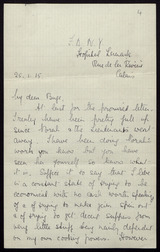 4
F. A. N. Y
Hospital Lamarck
Rue de la Rivière
Calais
25.1.15
My dear Boys,
At last for the promised letter.
I really have been pretty full up
since Norah & the Lieutenant went
away. I have been doing Norah's
wards you know but you have
seen her yourself so know what
is on. Suffice it to say that I live
in a constant state of trying to be
economical with no coal worth speaking
of & of trying to make jam spin out
& of trying to get decent suppers from
very little stuff being nearly dependent
on my own cooking powers. However